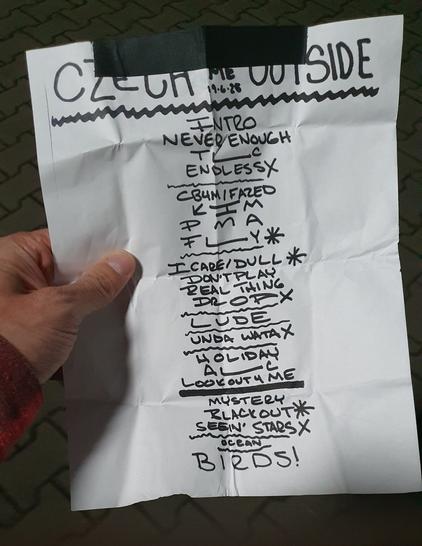 CZECH ME OUTSIDE
19.6.28
INTRO
NEVER ENOUGH
T__C
ENDLESS X
CBUMI/FAZED
K H M
P M A
F__Y *
I CARE/DULL *
DON'T PLAY
REAL THING
DROP X
LUDE
UNDA WATA X
HOLIDAY
A__C
LOOKOUT 4 ME
MYSTERY
BLACKOUT *
SEEIN' STARS X
OCEAN
BIRDS!